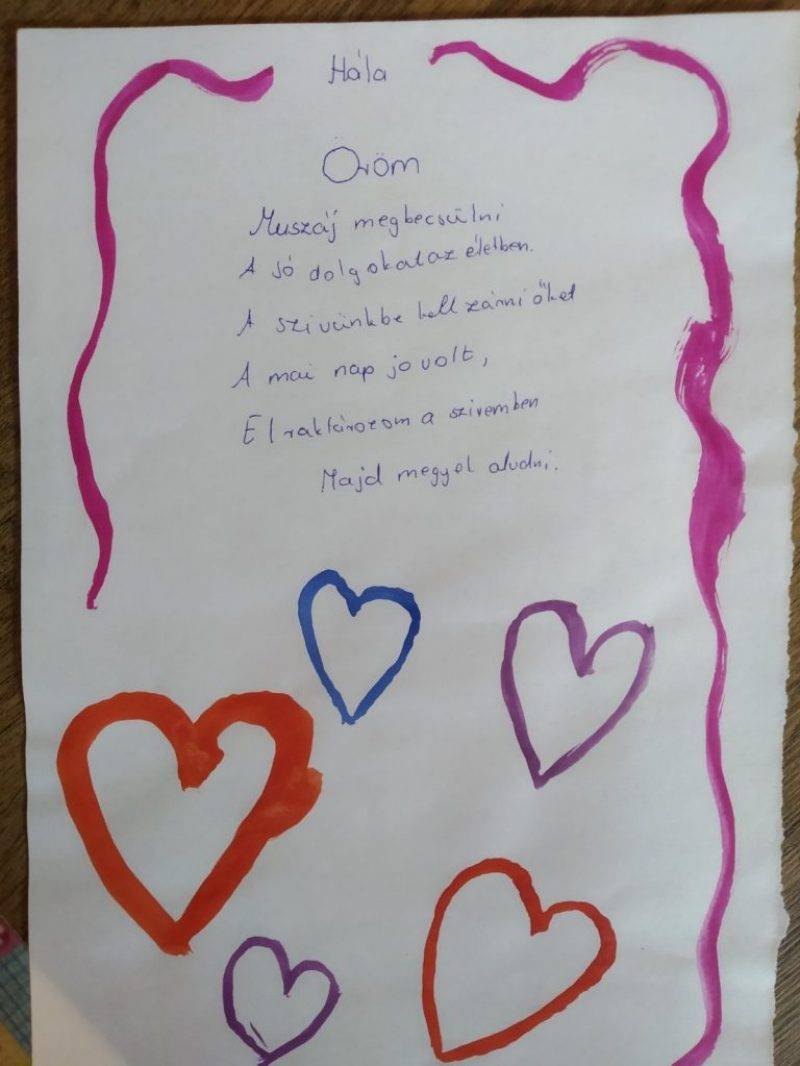 Hála
Öröm
Muszáj megbecsülni
A jó dolgokat az életben.
A szivünkbe kell zárni őket
A mai nap jo volt,
Elraktározom a szivemben
Majd megyel aludni.